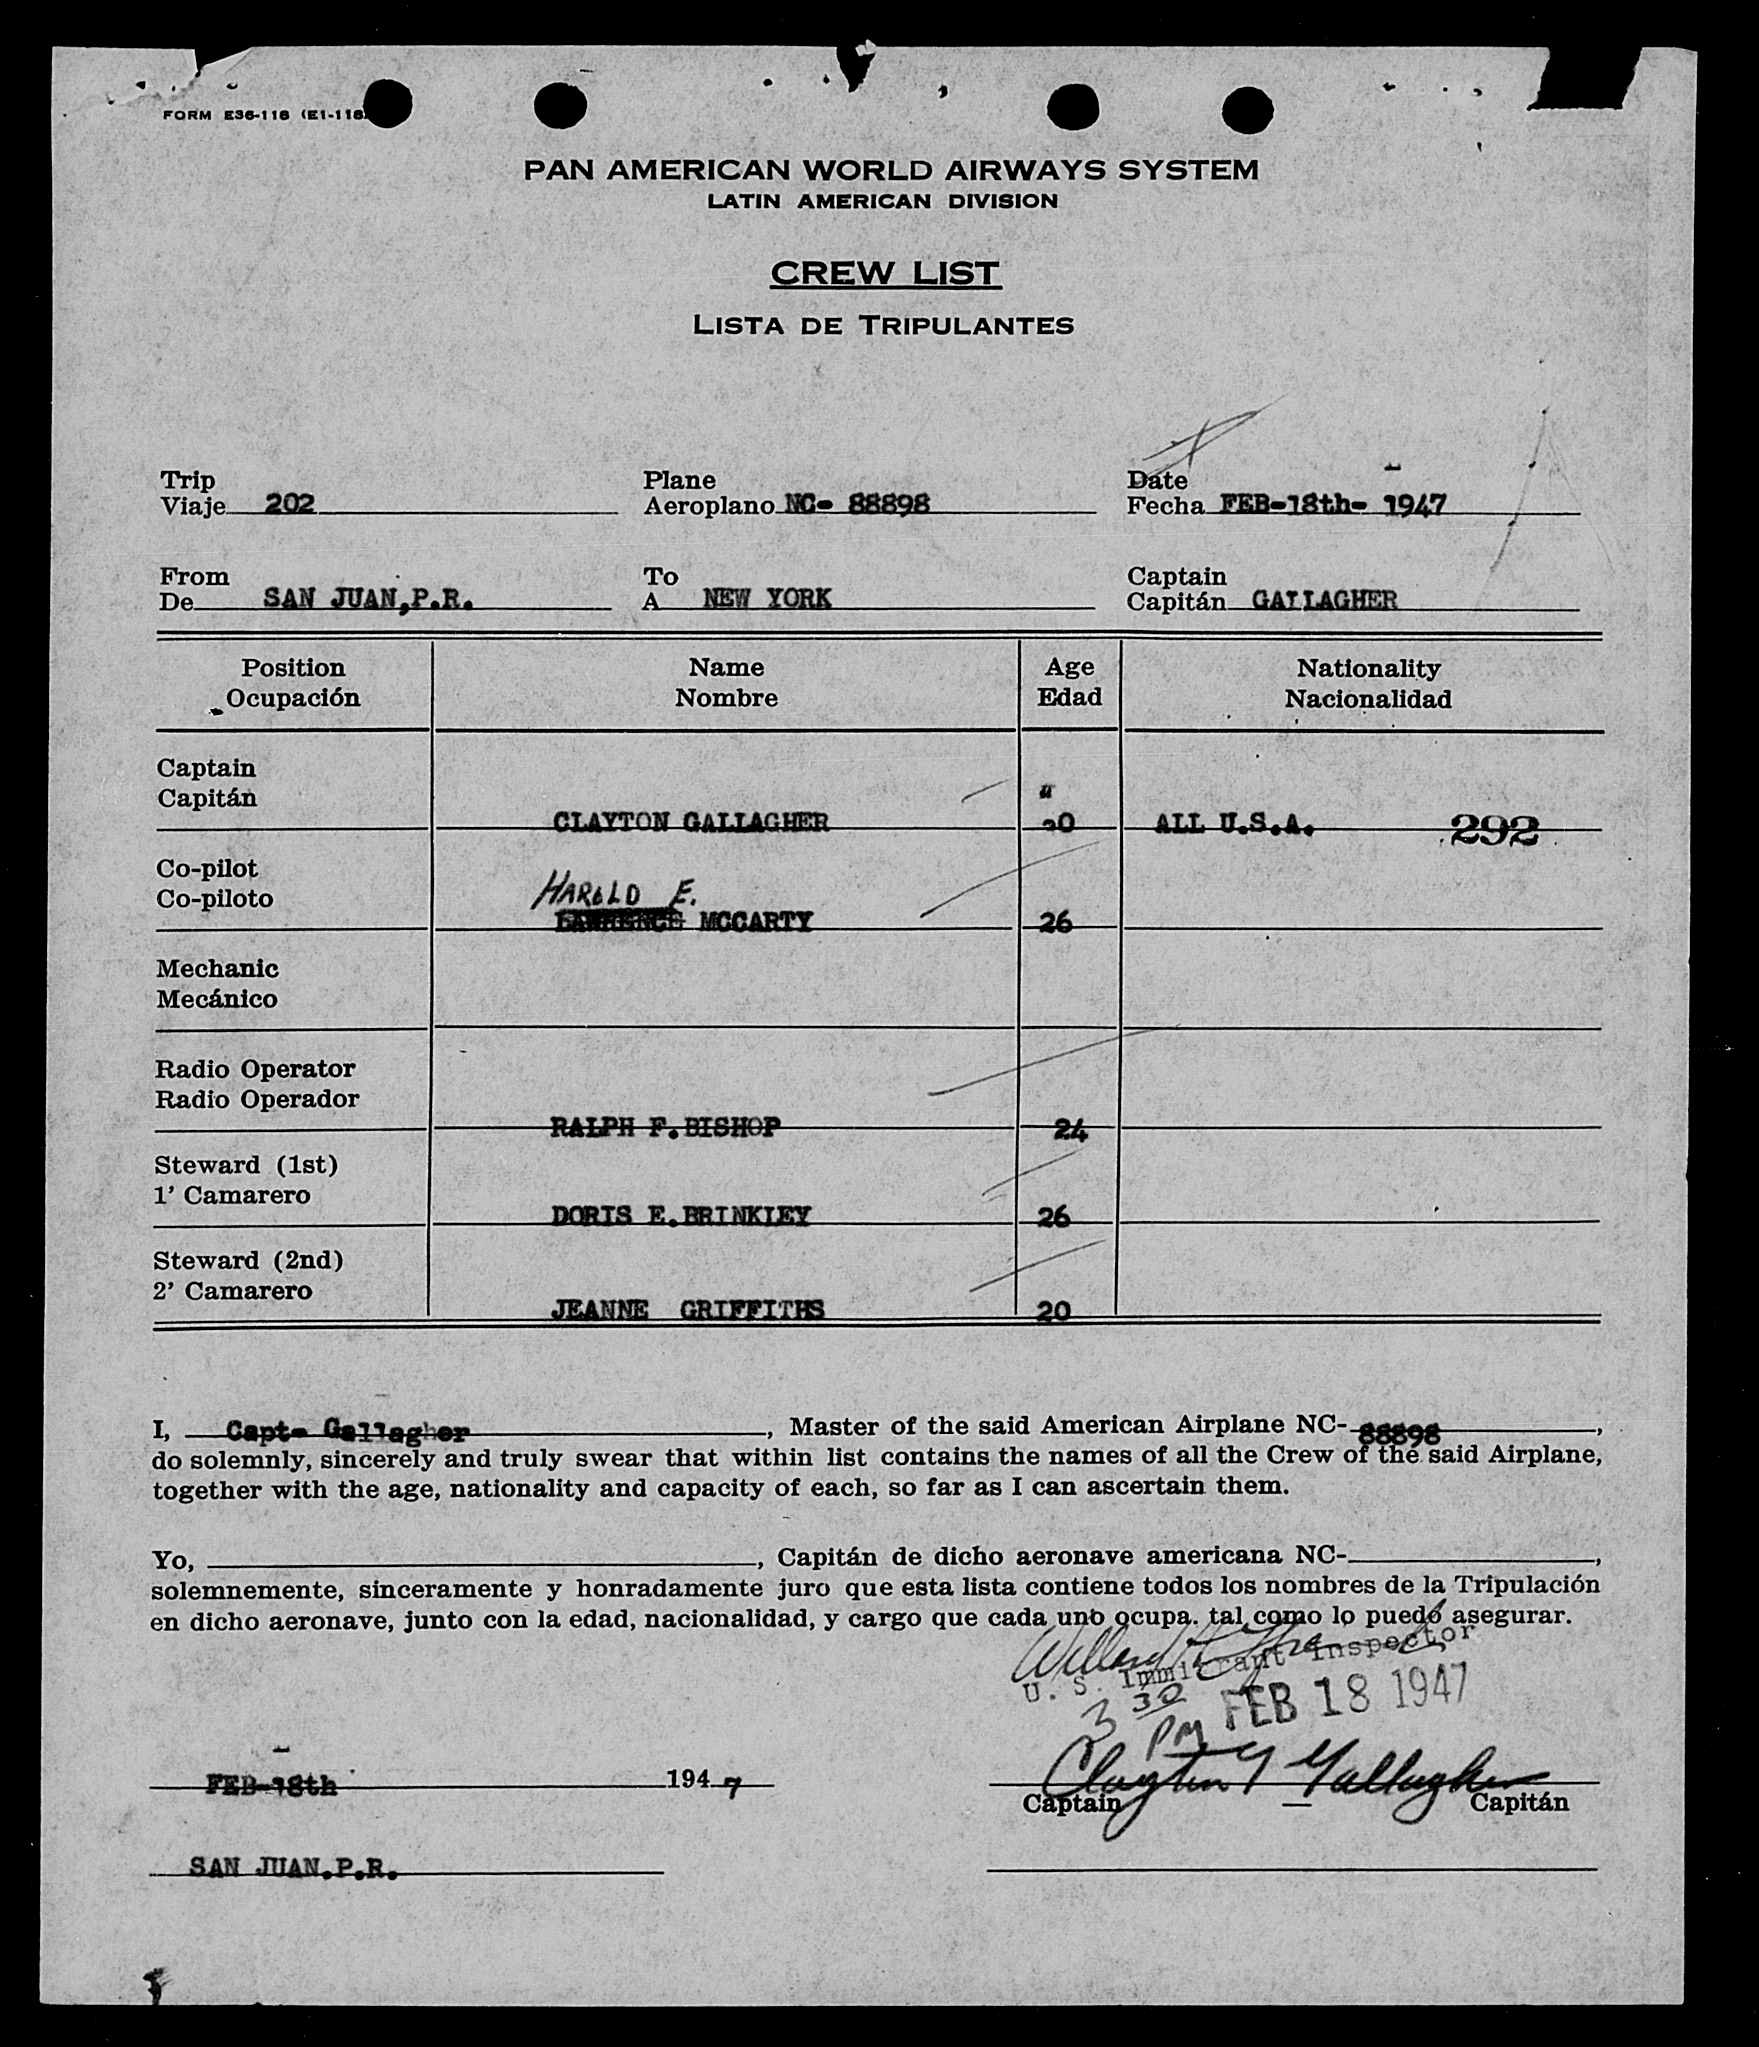 FORM E36-118 (E1-118)
PAN AMERICAN WORLD AIRWAYS SYSTEM
LATIN AMERICAN DIVISION
CREW LIST
LISTA DE TRIPULANTES
Trip
Viaje 202
Plane
Aeroplano NC- 88898
Date
Fecha FEB-18th- 1947
From
De SAN JUAN,P.R.
To
A NEW YORK
Captain
Capitán GALLAGHER
Position
Ocupación
Name
Nombre
Age
Edad
Nationality
Nacionalidad
Captain
Capitán
CLAYTON GALLAGHER
ALL U.S.A. 292
Co-pilot
Co-piloto
HAROLD E.
LAWRENCE MCCARTY 26
Mechanic
Mecánico
Radio Operator
Radio Operador
RALPH F.BISHOP 24
Steward (1st)
1' Camarero
DORIS E.BRINKLEY 26
Steward (2nd)
2' Camarero
JEANNE GRIFFITHS 20
I, Capt- Gallagher, Master of the said American Airplane NC-88898,
do solemnly, sincerely and truly swear that within list contains the names of all the Crew of the said Airplane,
together with the age, nationality and capacity of each, so far as I can ascertain them.
Yo, , Capitán de dicho aeronave americana NC- ,
solemnemente, sinceramente y honradamente juro que esta lista contiene todos los nombres de la Tripulación
en dicho aeronave, junto con la edad, nacionalidad, y cargo que cada uno ocupa. tal como lo puedo asegurar.
U. S. Immigrant Inspector
3 30 PM FEB 18 1947
FEB-18th 1947
Clayton Gallagher
Captain — Capitán
SAN JUAN.P.R.